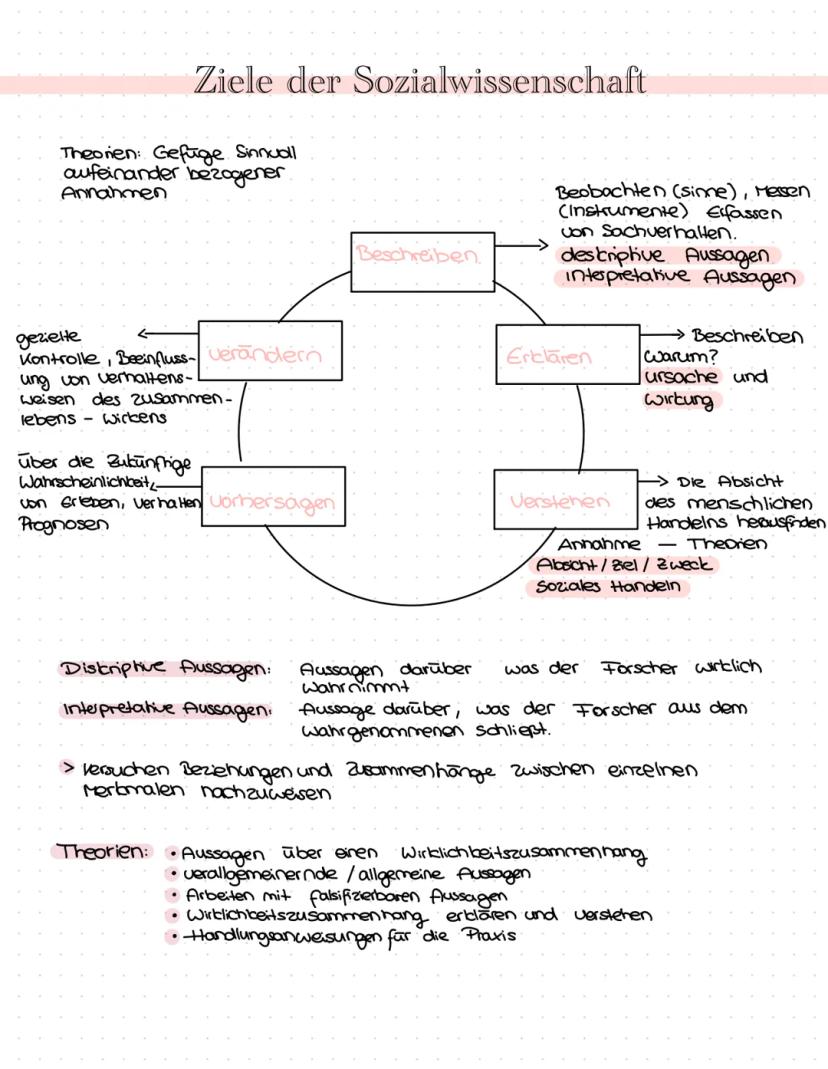 Ziele der Sozialwissenschaft
Theorien: Gefüge Sinnvoll
aufeinander bezogener
Annahmen
Beobachten (sinne), Messen
(Instrumente) Erfassen
von Sachverhalten.
deskriptive Aussagen
interpretative Aussagen
Beschreiben
Erklären
Beschreiben
Warum?
ursache und
Wirkung
verstehen
Die Absicht
des menschlichen
Handelns herausfinden
Annahme — Theorien
Absicht / Ziel / Zweck
Soziales Handeln
vorhersagen
über die Zukünftige
Wahrscheinlichkeit
von Erleben, Verhalten
Prognosen
verändern
gezielte
Kontrolle, Beeinfluss-
ung von verhaltens-
weisen des zusammen-
lebens - wirkens
Diskriptive Aussagen: Aussagen darüber was der Forscher wirklich
wahrnimmt
Interpretative Aussagen: Aussage darüber, was der Forscher aus dem
wahrgenommenen schließt.
> versuchen Beziehungen und Zusammenhänge zwischen einzelnen
Merkmalen nachzuweisen
Theorien: • Aussagen über einen Wirklichkeitszusammenhang
• verallgemeinernde / allgemeine Aussagen
• Arbeiten mit falsifizierbaren Aussagen
• Wirklichkeitszusammenhang erklären und verstehen
• Handlungsanweisungen für die Praxis